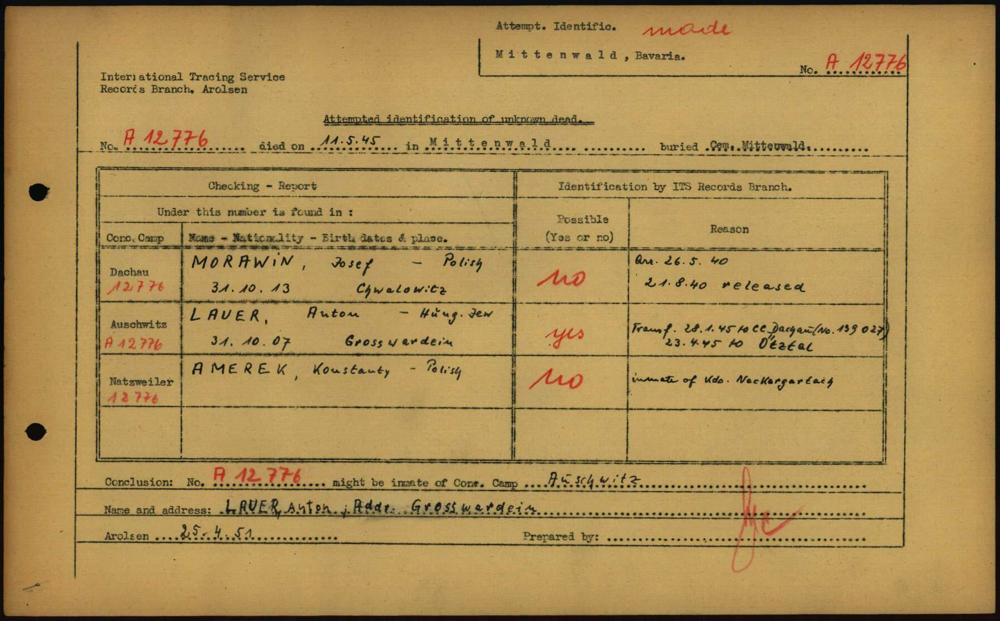 Attempt. Identific. made
Mittenwald, Bavaria.
No. A 12776
International Tracing Service
Records Branch, Arolsen
Attempted identification of unknown dead.
No. A 12776 died on 11.5.45 in Mittenwald buried Cem. Mittenwald.
Checking - Report
Identification by ITS Records Branch.
Under this number is found in :
Possible
(Yes or no)
Reason
Conc. Camp
Name - Nationality - Birth dates & place.
Dachau
12776
MORAWIN, Josef - Polish
31.10.13 Chwalowitz
no
Arr. 26.5.40
21.8.40 released
Auschwitz
A 12776
LAUER, Anton - Hung. Jew
31.10.07 Grosswardein
yes
Transf. 28.1.45 to CC Dachau (No. 139 027)
23.4.45 to Ötztal
Natzweiler
12776
AMEREK, Konstanty - Polish
no
inmate of Kdo. Neckargartach
Conclusion: No. A 12776 might be inmate of Conc. Camp Auschwitz
Name and address: LAUER, Anton, Addr. Grosswardein
Arolsen 25.4.51
Prepared by: